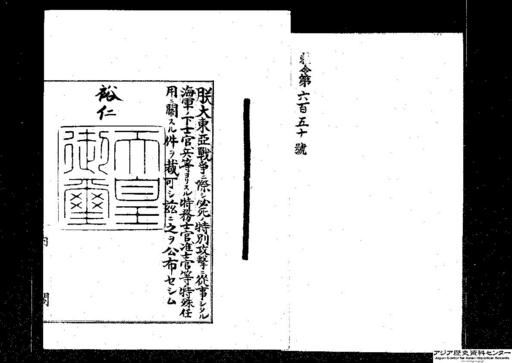 勅令第六百五十號
朕大東亞戰爭ニ際シ必死ノ特別攻擊ニ從事シタル
海軍ノ下士官兵等ヨリスル特務士官准士官等特殊任
用ニ關スル件ヲ裁可シ玆ニ之ヲ公布セシム
裕仁
天皇御璽
內閣
アジア歴史資料センター
Japan Center for Asian Historical Records